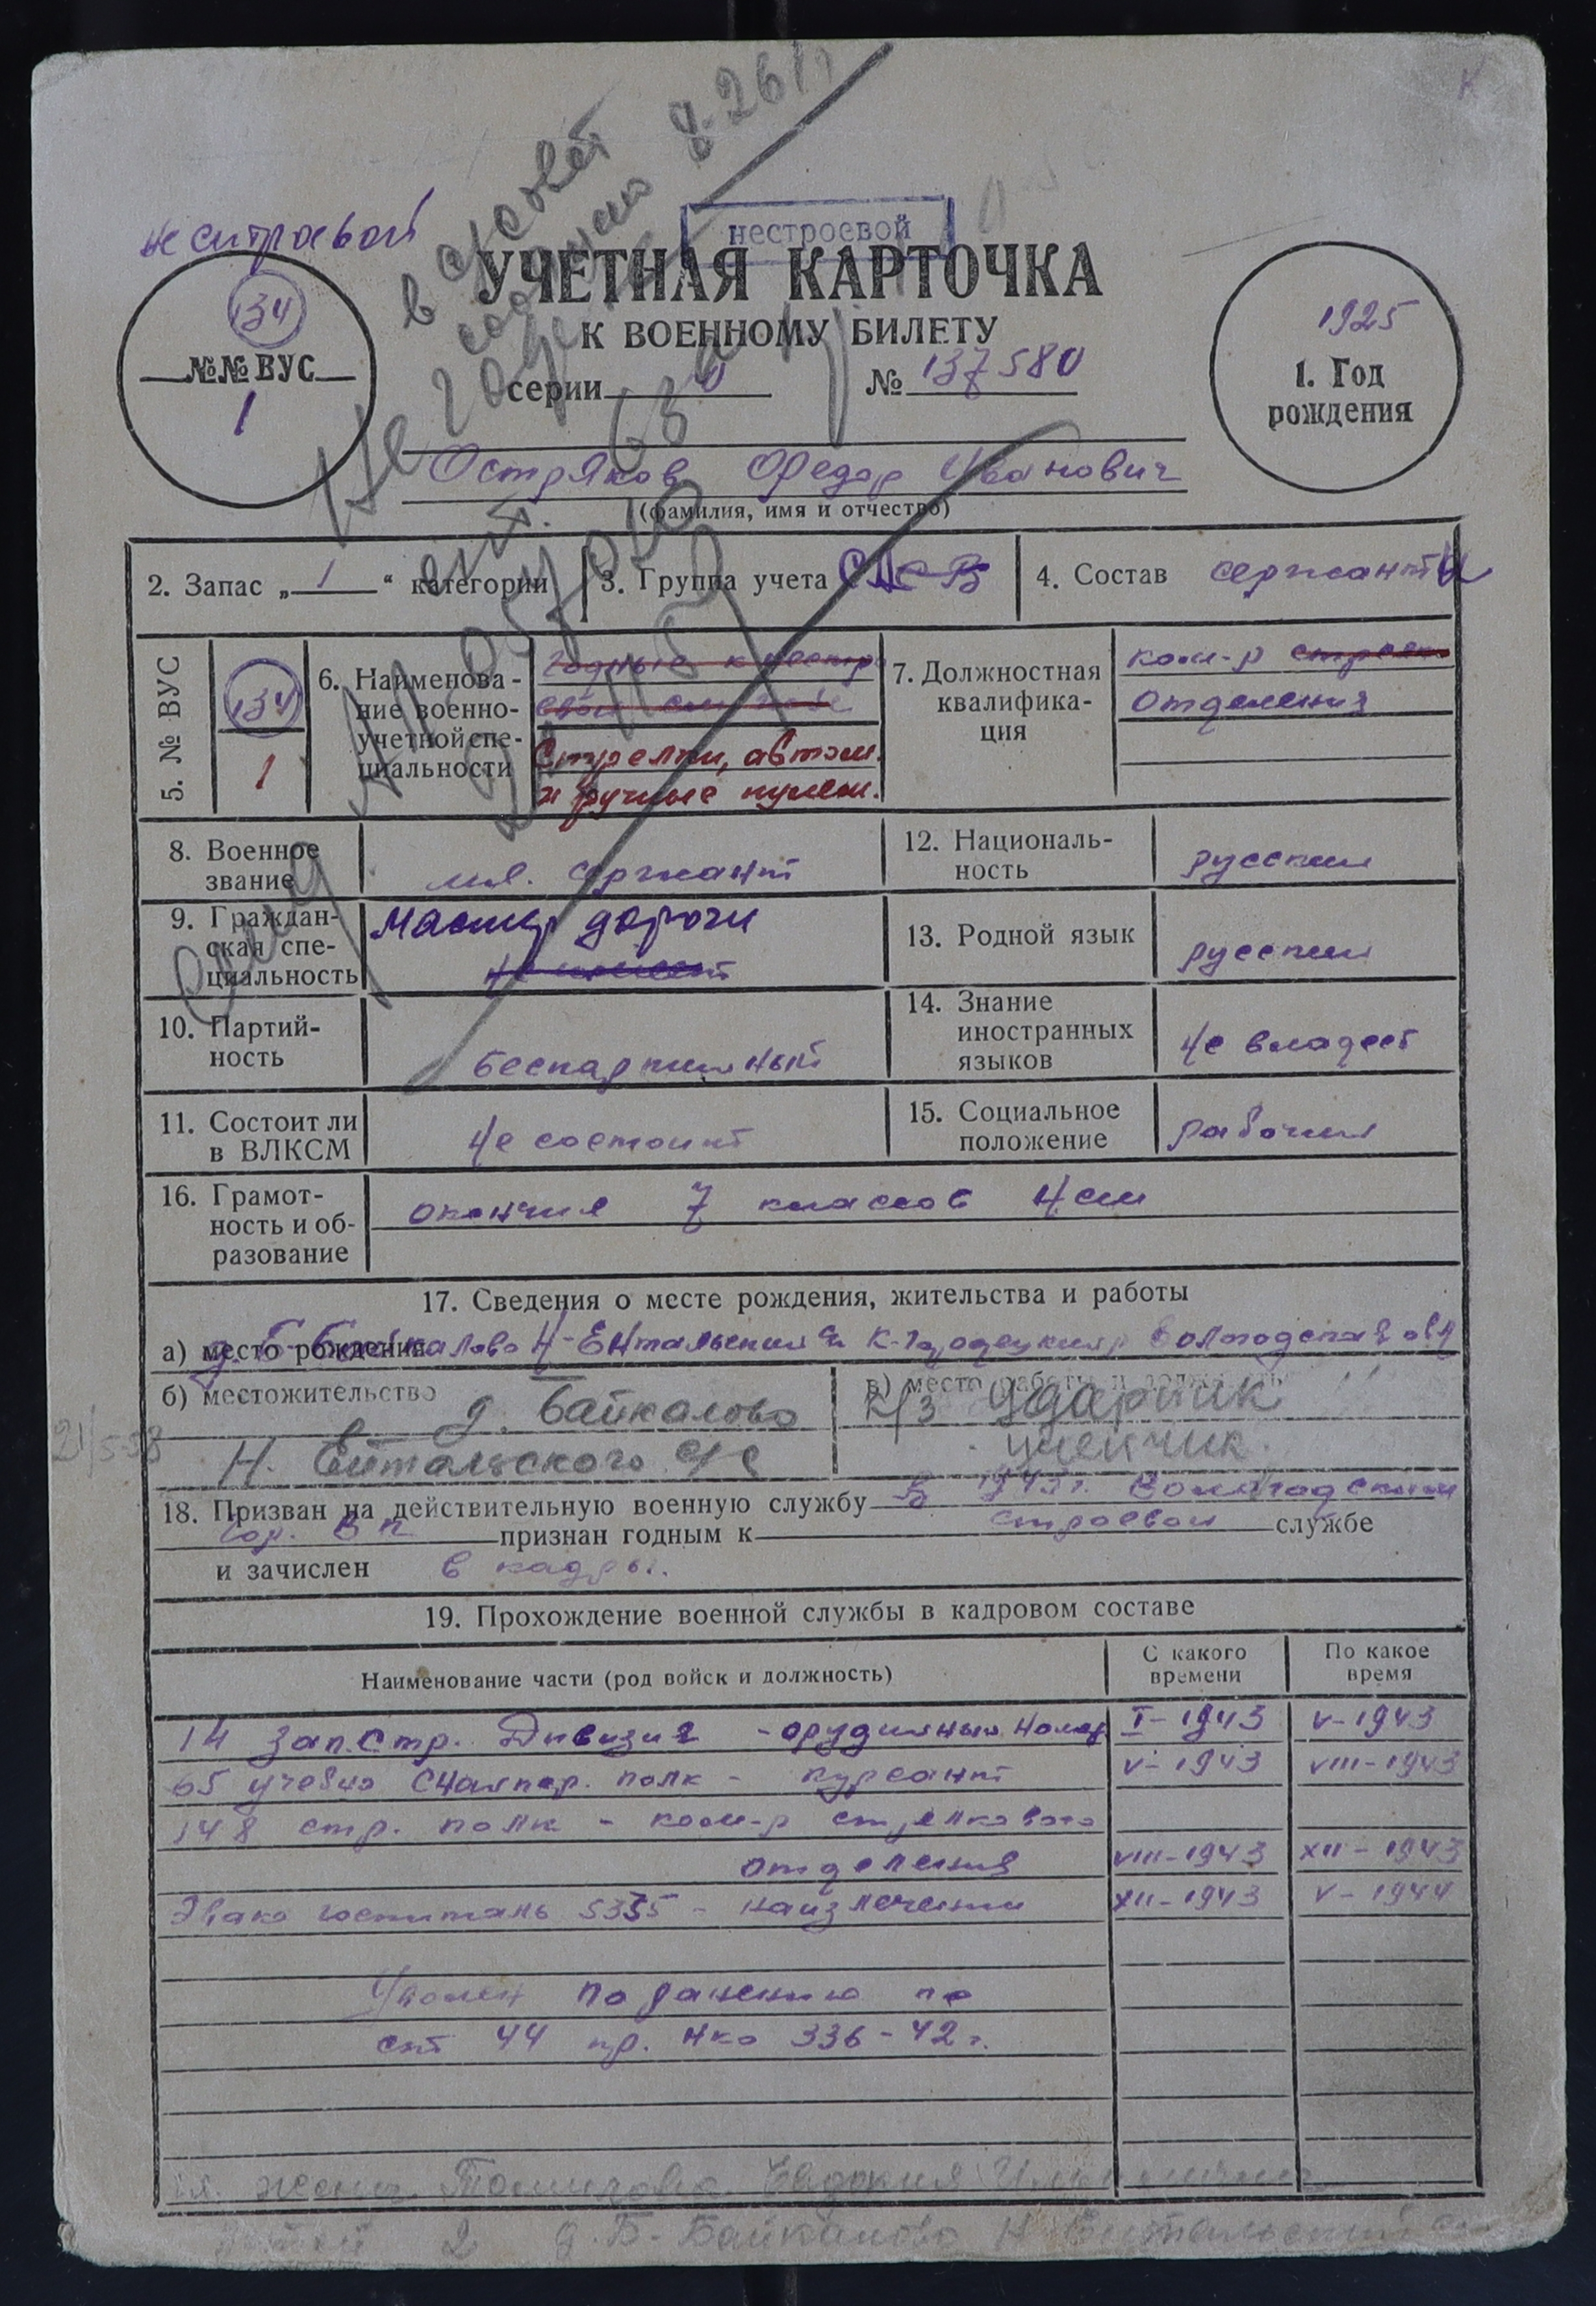 нестроевой
не строевой
134
№№ ВУС
1
УЧЕТНАЯ КАРТОЧКА
К ВОЕННОМУ БИЛЕТУ
серии № 137580
1925
1. Год
рождения
Остряков Федор Иванович
(фамилия, имя и отчество)
2. Запас „1“ категории
3. Группа учета
4. Состав сержанты
5. № ВУС
134
1
6. Наименова-
ние военно-
учетной спе-
циальности
годные к нестр
Стрелки, автом.
и ручные пулем.
7. Должностная
квалифика-
ция
ком-р стрелк
отделения
8. Военное
звание
мл. сержант
9. Граждан-
ская спе-
циальность
мастер дороги
не имеет
10. Партий-
ность
беспартийный
11. Состоит ли
в ВЛКСМ
не состоит
12. Националь-
ность
русский
13. Родной язык
русский
14. Знание
иностранных
языков
не владеет
15. Социальное
положение
рабочий
16. Грамот-
ность и об-
разование
окончил 7 классов нсш
17. Сведения о месте рождения, жительства и работы
а) место рождения д. Б-Байкалово Н-Ентальский с/с К-Городецкий р Вологодская обл
б) местожительство д. Байкалово
Н. Ентальского с/с
в) место работы и должность
К/з Ударник
21/5-58
18. Призван на действительную военную службу в 1943 г. Вологодским
гор. ВК признан годным к строевой службе
и зачислен в кадры.
19. Прохождение военной службы в кадровом составе
Наименование части (род войск и должность)
С какого
времени
По какое
время
14 зап. стр. Дивизия - орудийный номер I-1943 V-1943
65 учебно снайпер. полк - курсант V-1943 VIII-1943
148 стр. полк - ком-р стрелкового
отделения VIII-1943 XII-1943
Эвако госпиталь 5355 - на излечении XII-1943 V-1944
Уволен по ранению по
ст 44 пр. нко 336-42 г.
жена Евдокия
детей 2 д. Б-Байкалово Н Ентальский с/с